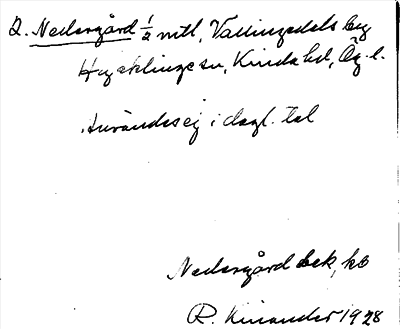 2. Nedergård 1/2 mtl, Vallingedels by
Hycklinge sn, Kinda hd, Ög. l.
Användes ej i dagl. tal
Nedergård bek, ko
R. Kinander 1928